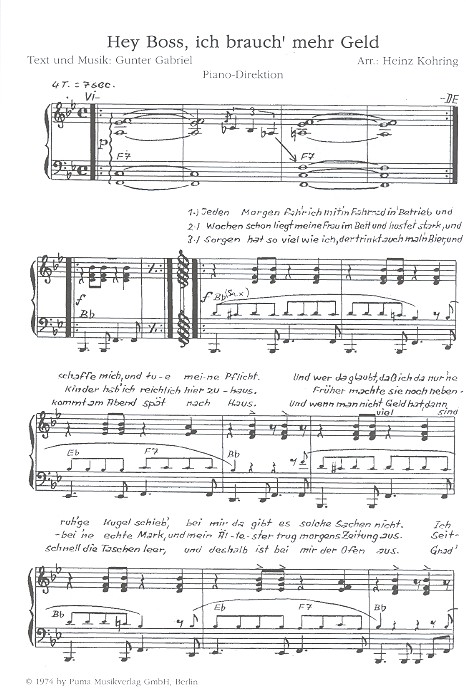 Hey Boss, ich brauch' mehr Geld
Text und Musik: Gunter Gabriel Arr.: Heinz Kohring
Piano-Direktion
4 T. = 7 sec.
Vi- -DE
P F7 F7
1.) Jeden Morgen fahr' ich mit'm Fahrrad in' Betrieb und
2.) Wochen schon liegt meine Frau im Bett und hustet stark, und
3.) Sorgen hat so viel wie ich, der trinkt auch mal'n Bier, und
f Bb f Bb (Sax)
schaffe mich, und tu-e mei-ne Pflicht. Und wer da glaubt, daß ich da nur 'ne
Kinder hab' ich reichlich hier zu-haus. Früher machte sie noch neben-
kommt am Abend spät nach Haus. Und wenn man nicht Geld hat, dann
viel sind
Eb F7 Bb
ruh'ge Kugel schieb', bei mir da gibt es solche Sachen nicht. Ich
-bei 'ne echte Mark, und mein Äl-te-ster trug morgens Zeitung aus. Seit-
schnell die Taschen leer, und deshalb ist bei mir der Ofen aus. Grad'
Bb Eb F7 Bb
© 1974 by Puma Musikverlag GmbH, Berlin